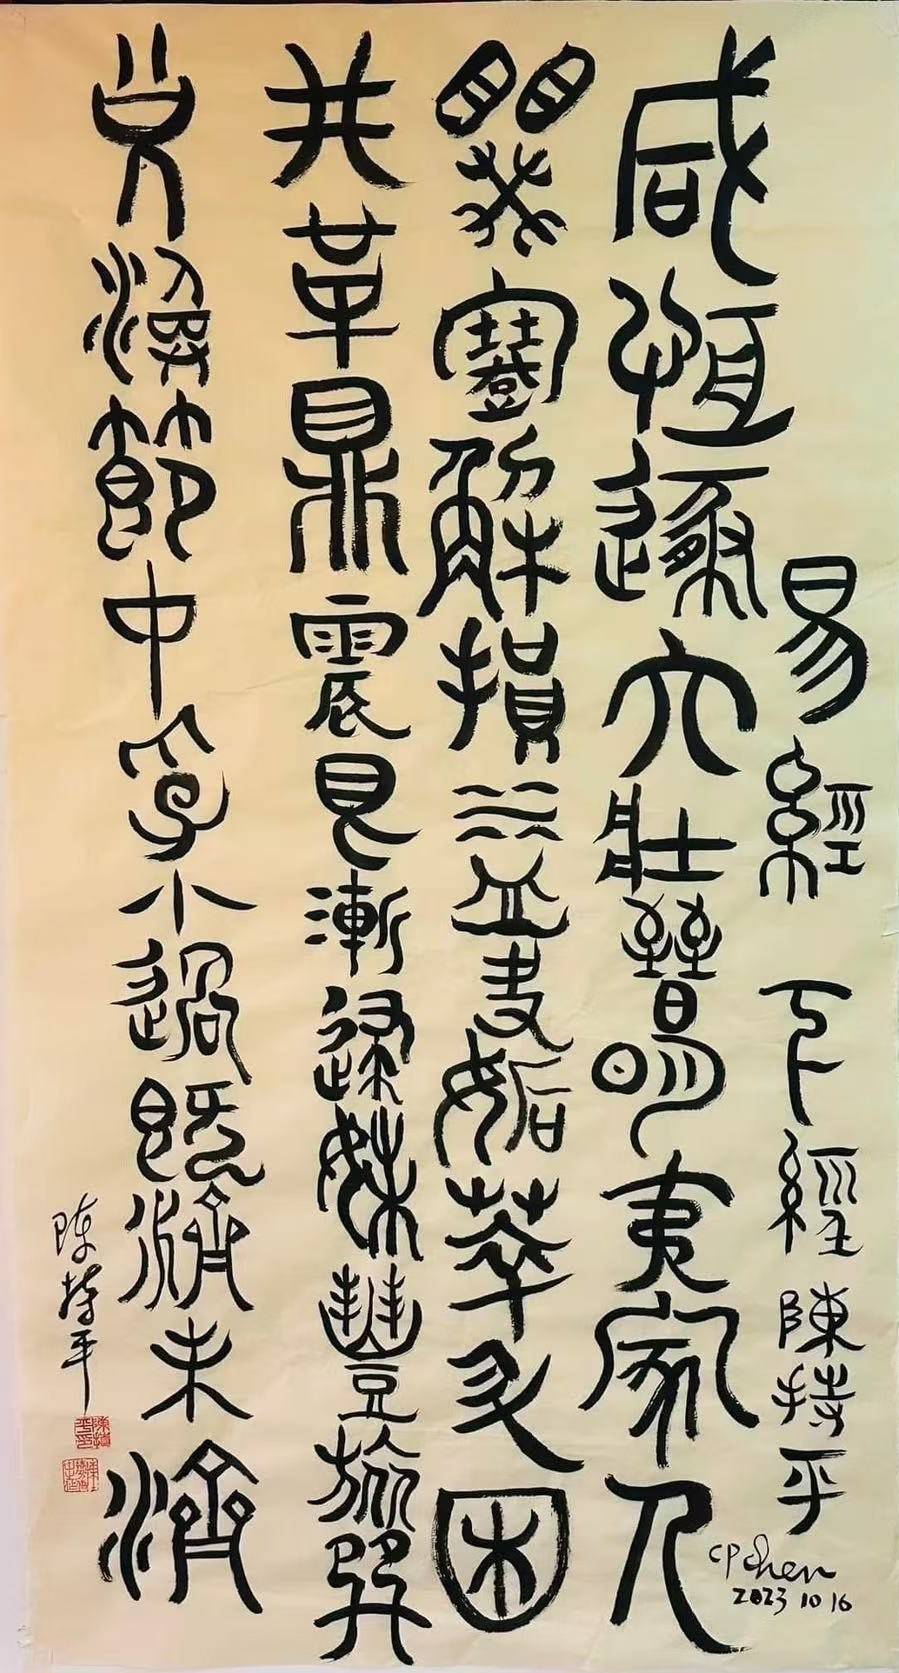 易經 下經 陳持平
CP Chen
2023 10 16
咸恆遯大壯晉明夷家人
睽蹇解損益夬姤萃升困
井革鼎震艮漸歸妹豐旅巽
兌渙節中孚小過既濟未濟
陳持平